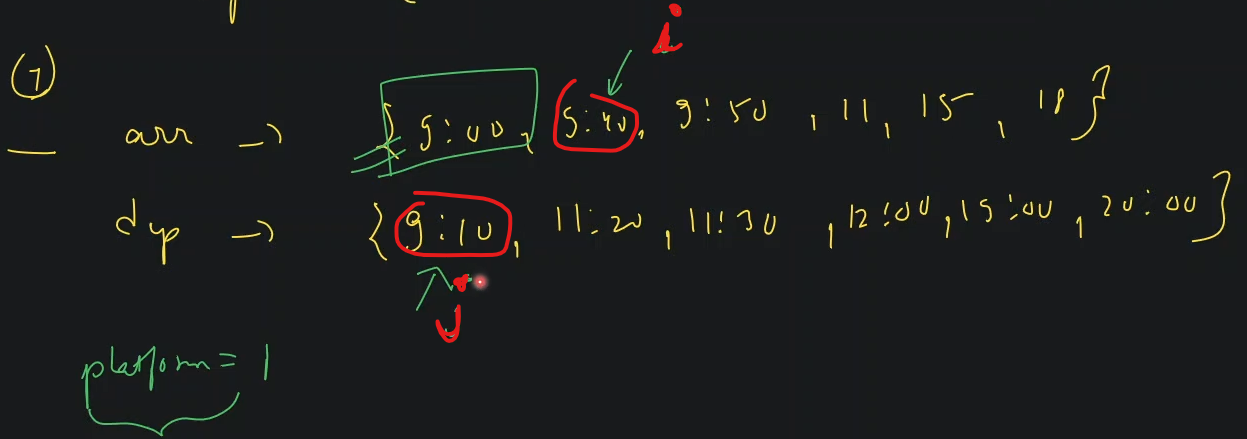 i
(7)
arr → { 9:00, 9:40, 9:50, 11, 15, 18 }
dep → { 9:10, 11:20, 11:30, 12:00, 15:00, 20:00 }
j
platform = 1